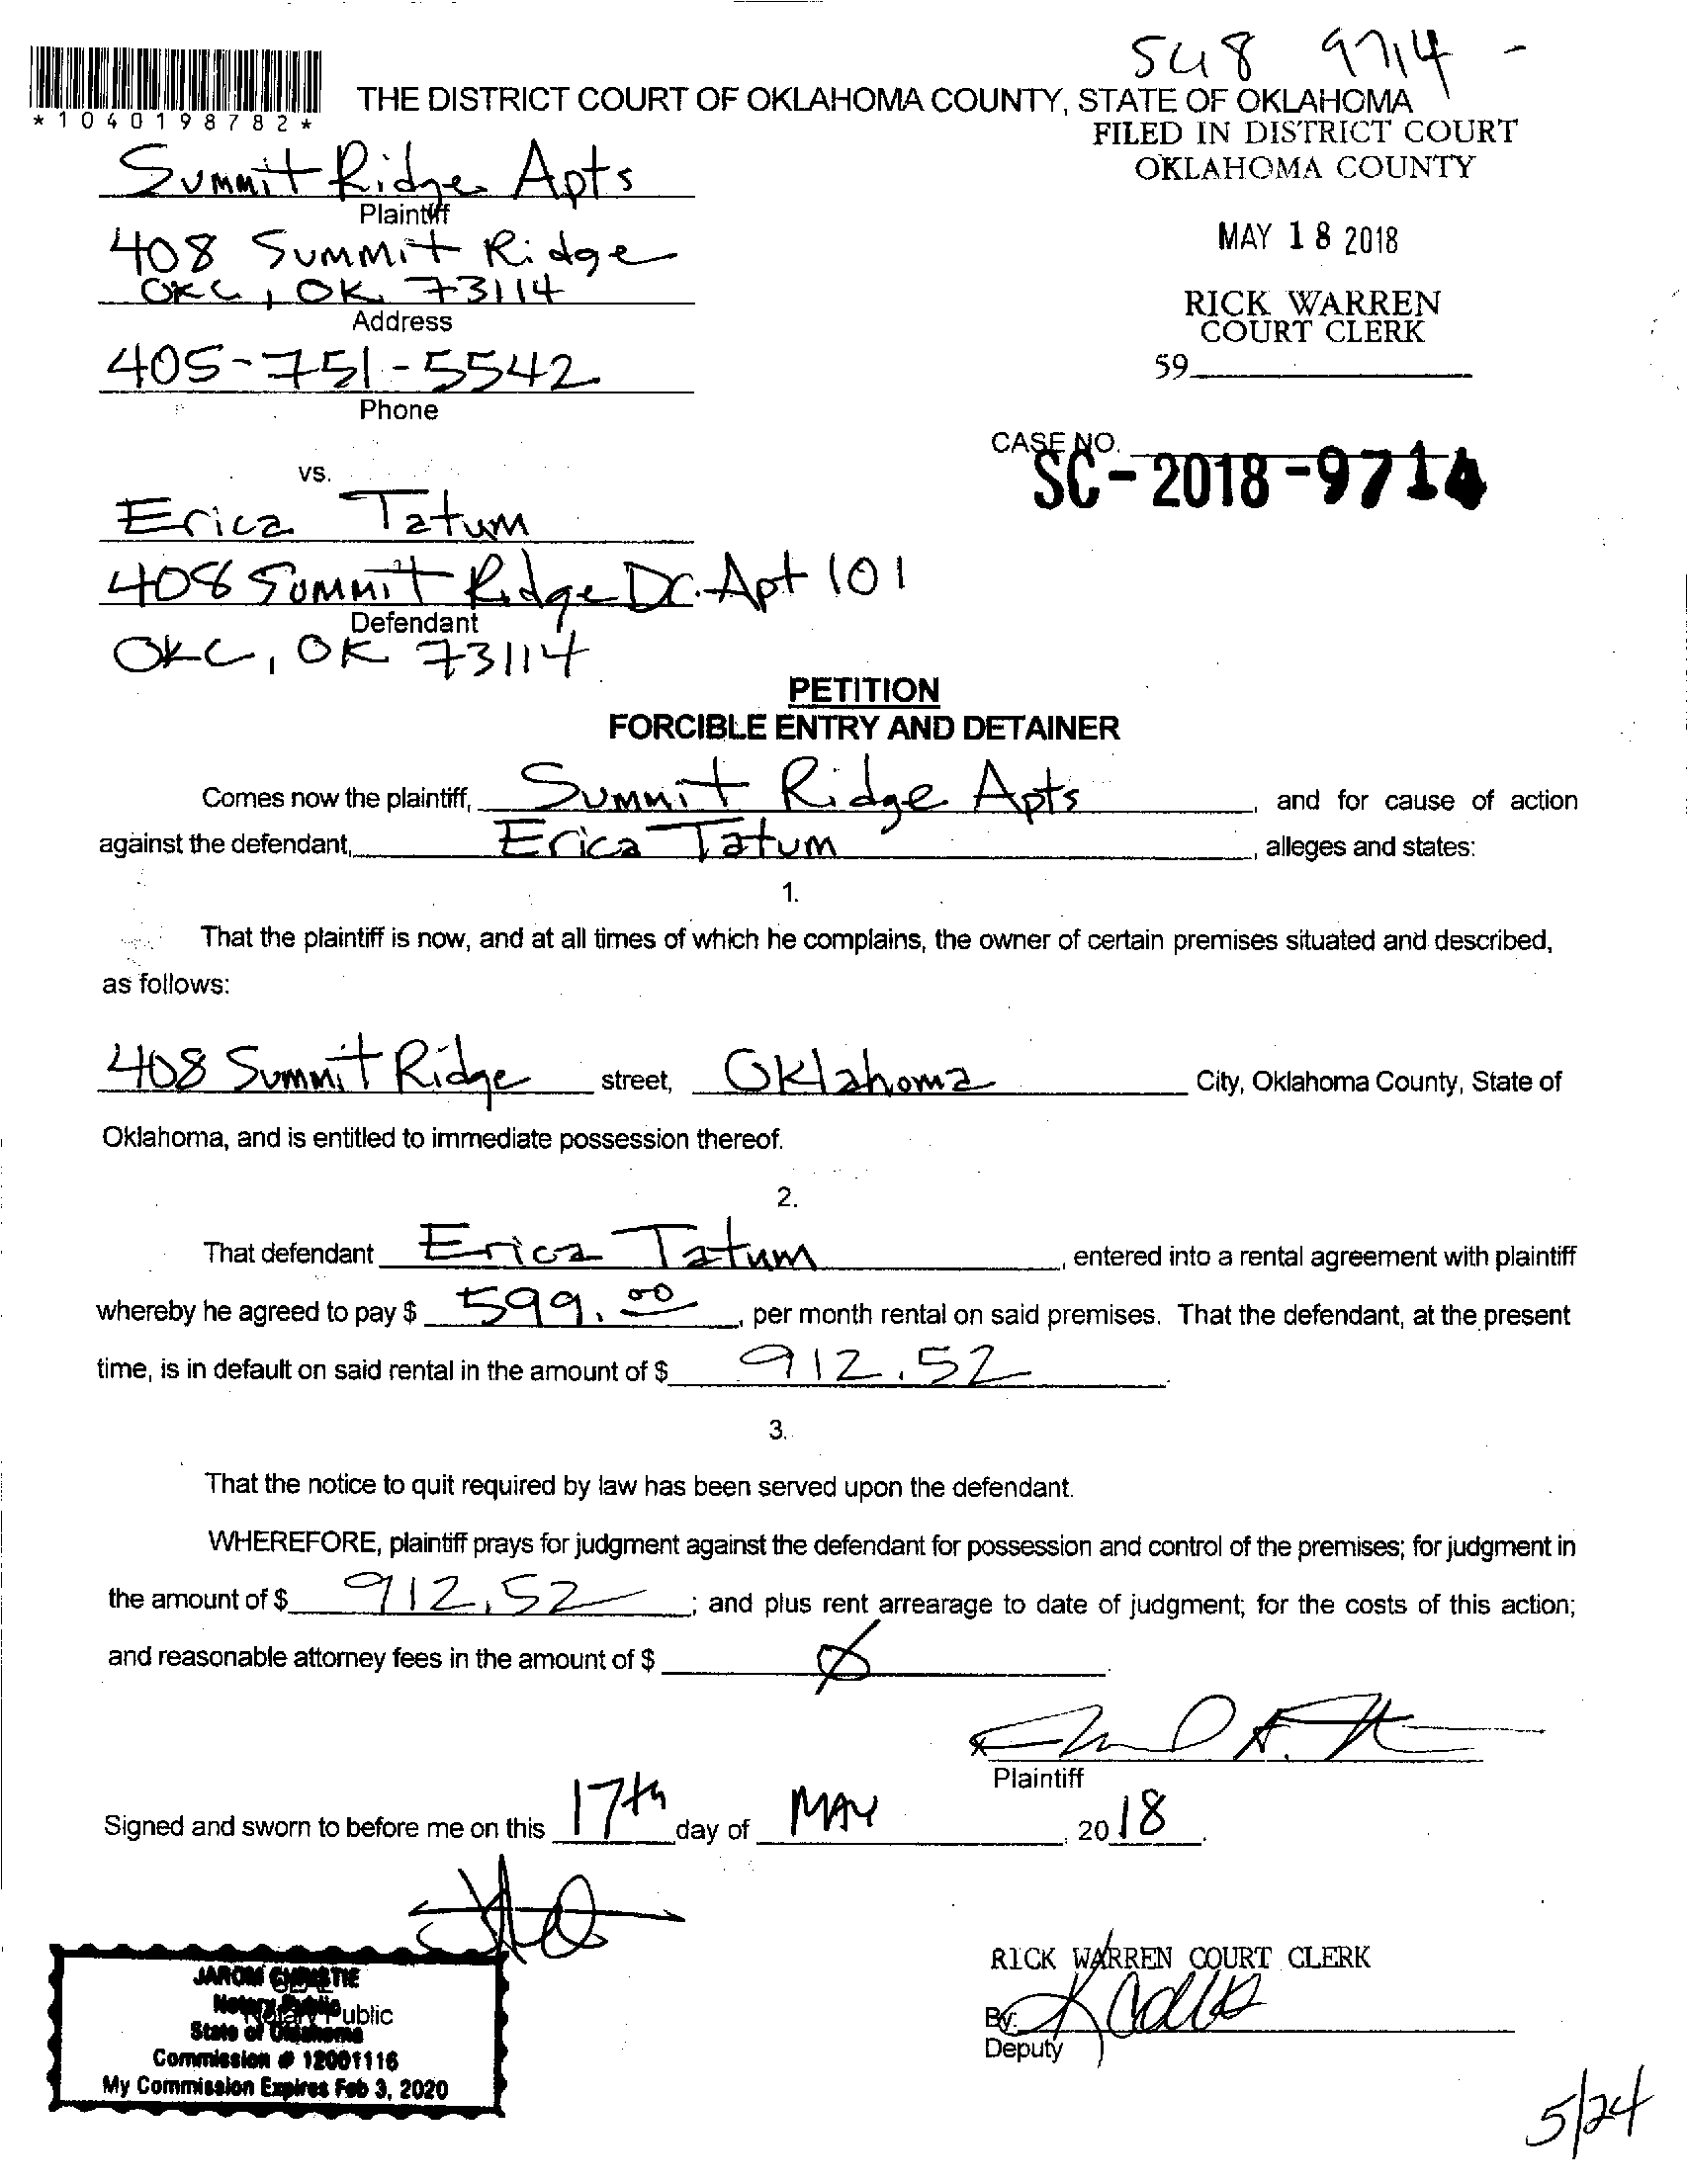 548 9714 -
*1040198782*
THE DISTRICT COURT OF OKLAHOMA COUNTY, STATE OF OKLAHOMA
FILED IN DISTRICT COURT
OKLAHOMA COUNTY
MAY 18 2018
RICK WARREN
COURT CLERK
59
Summit Ridge Apts
Plaintiff
408 Summit Ridge
OKC, OK 73114
Address
405-751-5542
Phone
CASE NO.
SC-2018-9714
vs.
Erica Tatum
408 Summit Ridge Dr. Apt 101
Defendant
OKC, OK 73114
PETITION
FORCIBLE ENTRY AND DETAINER
Comes now the plaintiff, Summit Ridge Apts, and for cause of action
against the defendant, Erica Tatum, alleges and states:
1.
That the plaintiff is now, and at all times of which he complains, the owner of certain premises situated and described,
as follows:
408 Summit Ridge street, Oklahoma City, Oklahoma County, State of
Oklahoma, and is entitled to immediate possession thereof.
2.
That defendant Erica Tatum, entered into a rental agreement with plaintiff
whereby he agreed to pay $ 599.00, per month rental on said premises. That the defendant, at the present
time, is in default on said rental in the amount of $ 912.52.
3.
That the notice to quit required by law has been served upon the defendant.
WHEREFORE, plaintiff prays for judgment against the defendant for possession and control of the premises; for judgment in
the amount of $ 912.52; and plus rent arrearage to date of judgment; for the costs of this action;
and reasonable attorney fees in the amount of $ Ø.
Plaintiff
Signed and sworn to before me on this 17th day of MAY, 2018.
JAROM CHRISTIE
Notary Public
State of Oklahoma
Commission # 12001116
My Commission Expires Feb 3, 2020
RICK WARREN COURT CLERK
By:
Deputy
5/24